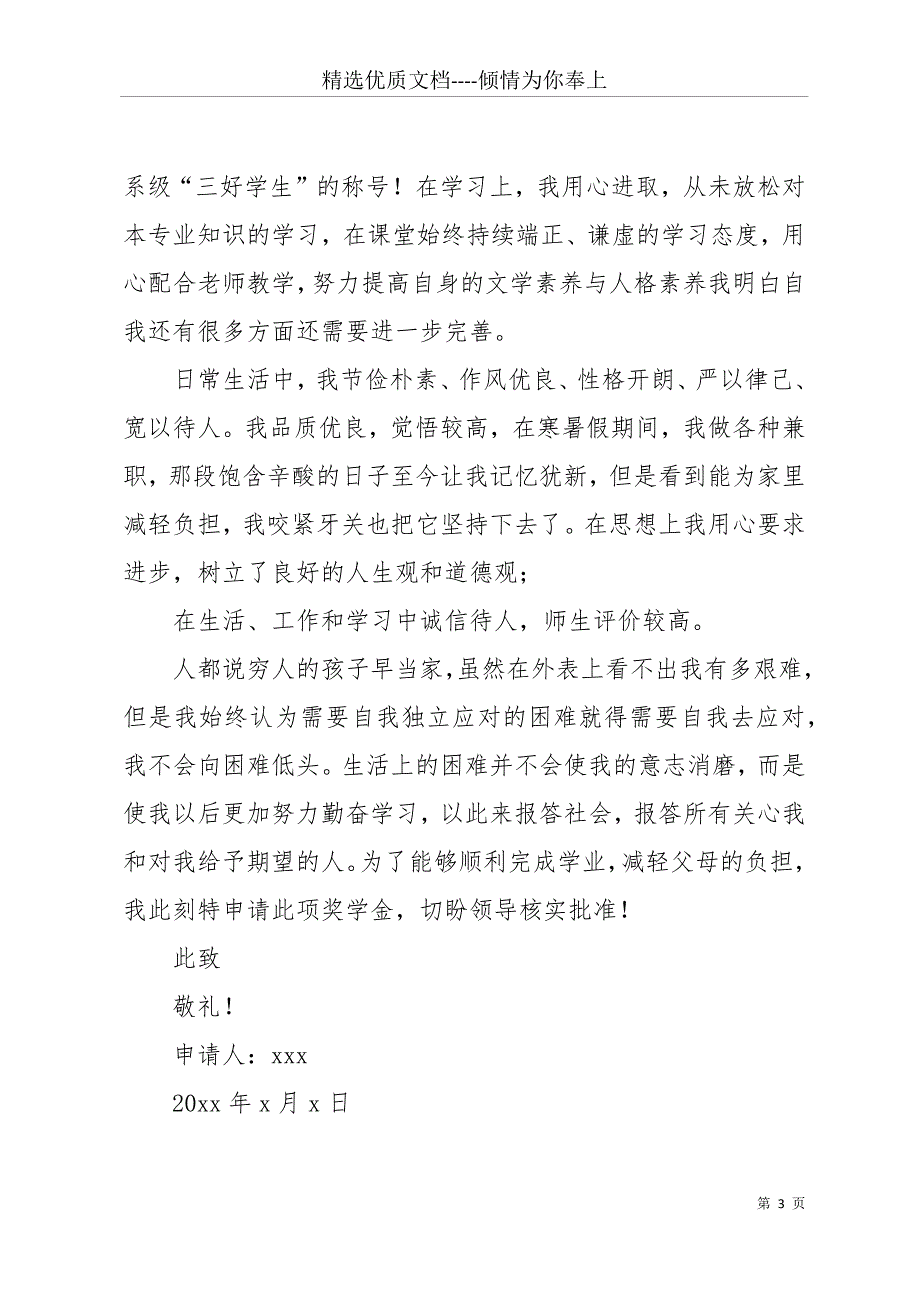 精选优质文档----倾情为你奉上
系级“三好学生”的称号！在学习上，我用心进取，从未放松对
本专业知识的学习，在课堂始终持续端正、谦虚的学习态度，用
心配合老师教学，努力提高自身的文学素养与人格素养我明白自
我还有很多方面还需要进一步完善。
日常生活中，我节俭朴素、作风优良、性格开朗、严以律己、
宽以待人。我品质优良，觉悟较高，在寒暑假期间，我做各种兼
职，那段饱含辛酸的日子至今让我记忆犹新，但是看到能为家里
减轻负担，我咬紧牙关也把它坚持下去了。在思想上我用心要求
进步，树立了良好的人生观和道德观；
在生活、工作和学习中诚信待人，师生评价较高。
人都说穷人的孩子早当家，虽然在外表上看不出我有多艰难，
但是我始终认为需要自我独立应对的困难就得需要自我去应对，
我不会向困难低头。生活上的困难并不会使我的意志消磨，而是
使我以后更加努力勤奋学习，以此来报答社会，报答所有关心我
和对我给予期望的人。为了能够顺利完成学业，减轻父母的负担，
我此刻特申请此项奖学金，切盼领导核实批准！
此致
敬礼！
申请人：xxx
20xx 年 x 月 x 日
第 3 页